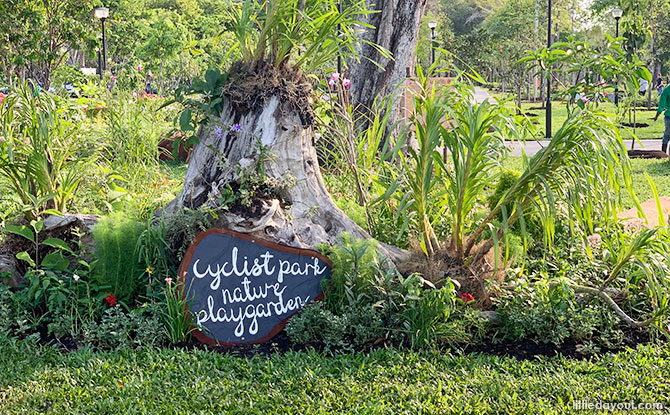 cyclist park
nature
playgarden
littledayout.com